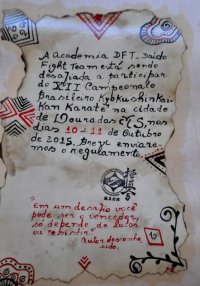 A Academia DFT. Daido
Fight Team está sendo
desafiada a participar
do XII Campeonato
Brasileiro Kyokushinkai-
Kan Karatê na cidade
de Dourados MS, nos
dias 10-11 de Outubro
de 2015. Brevi enviare-
mos o regulamento
"Em um desafio você
pode ser o vencedor,
só depende de lutar
ou resistir!"
autor desconhe
cido